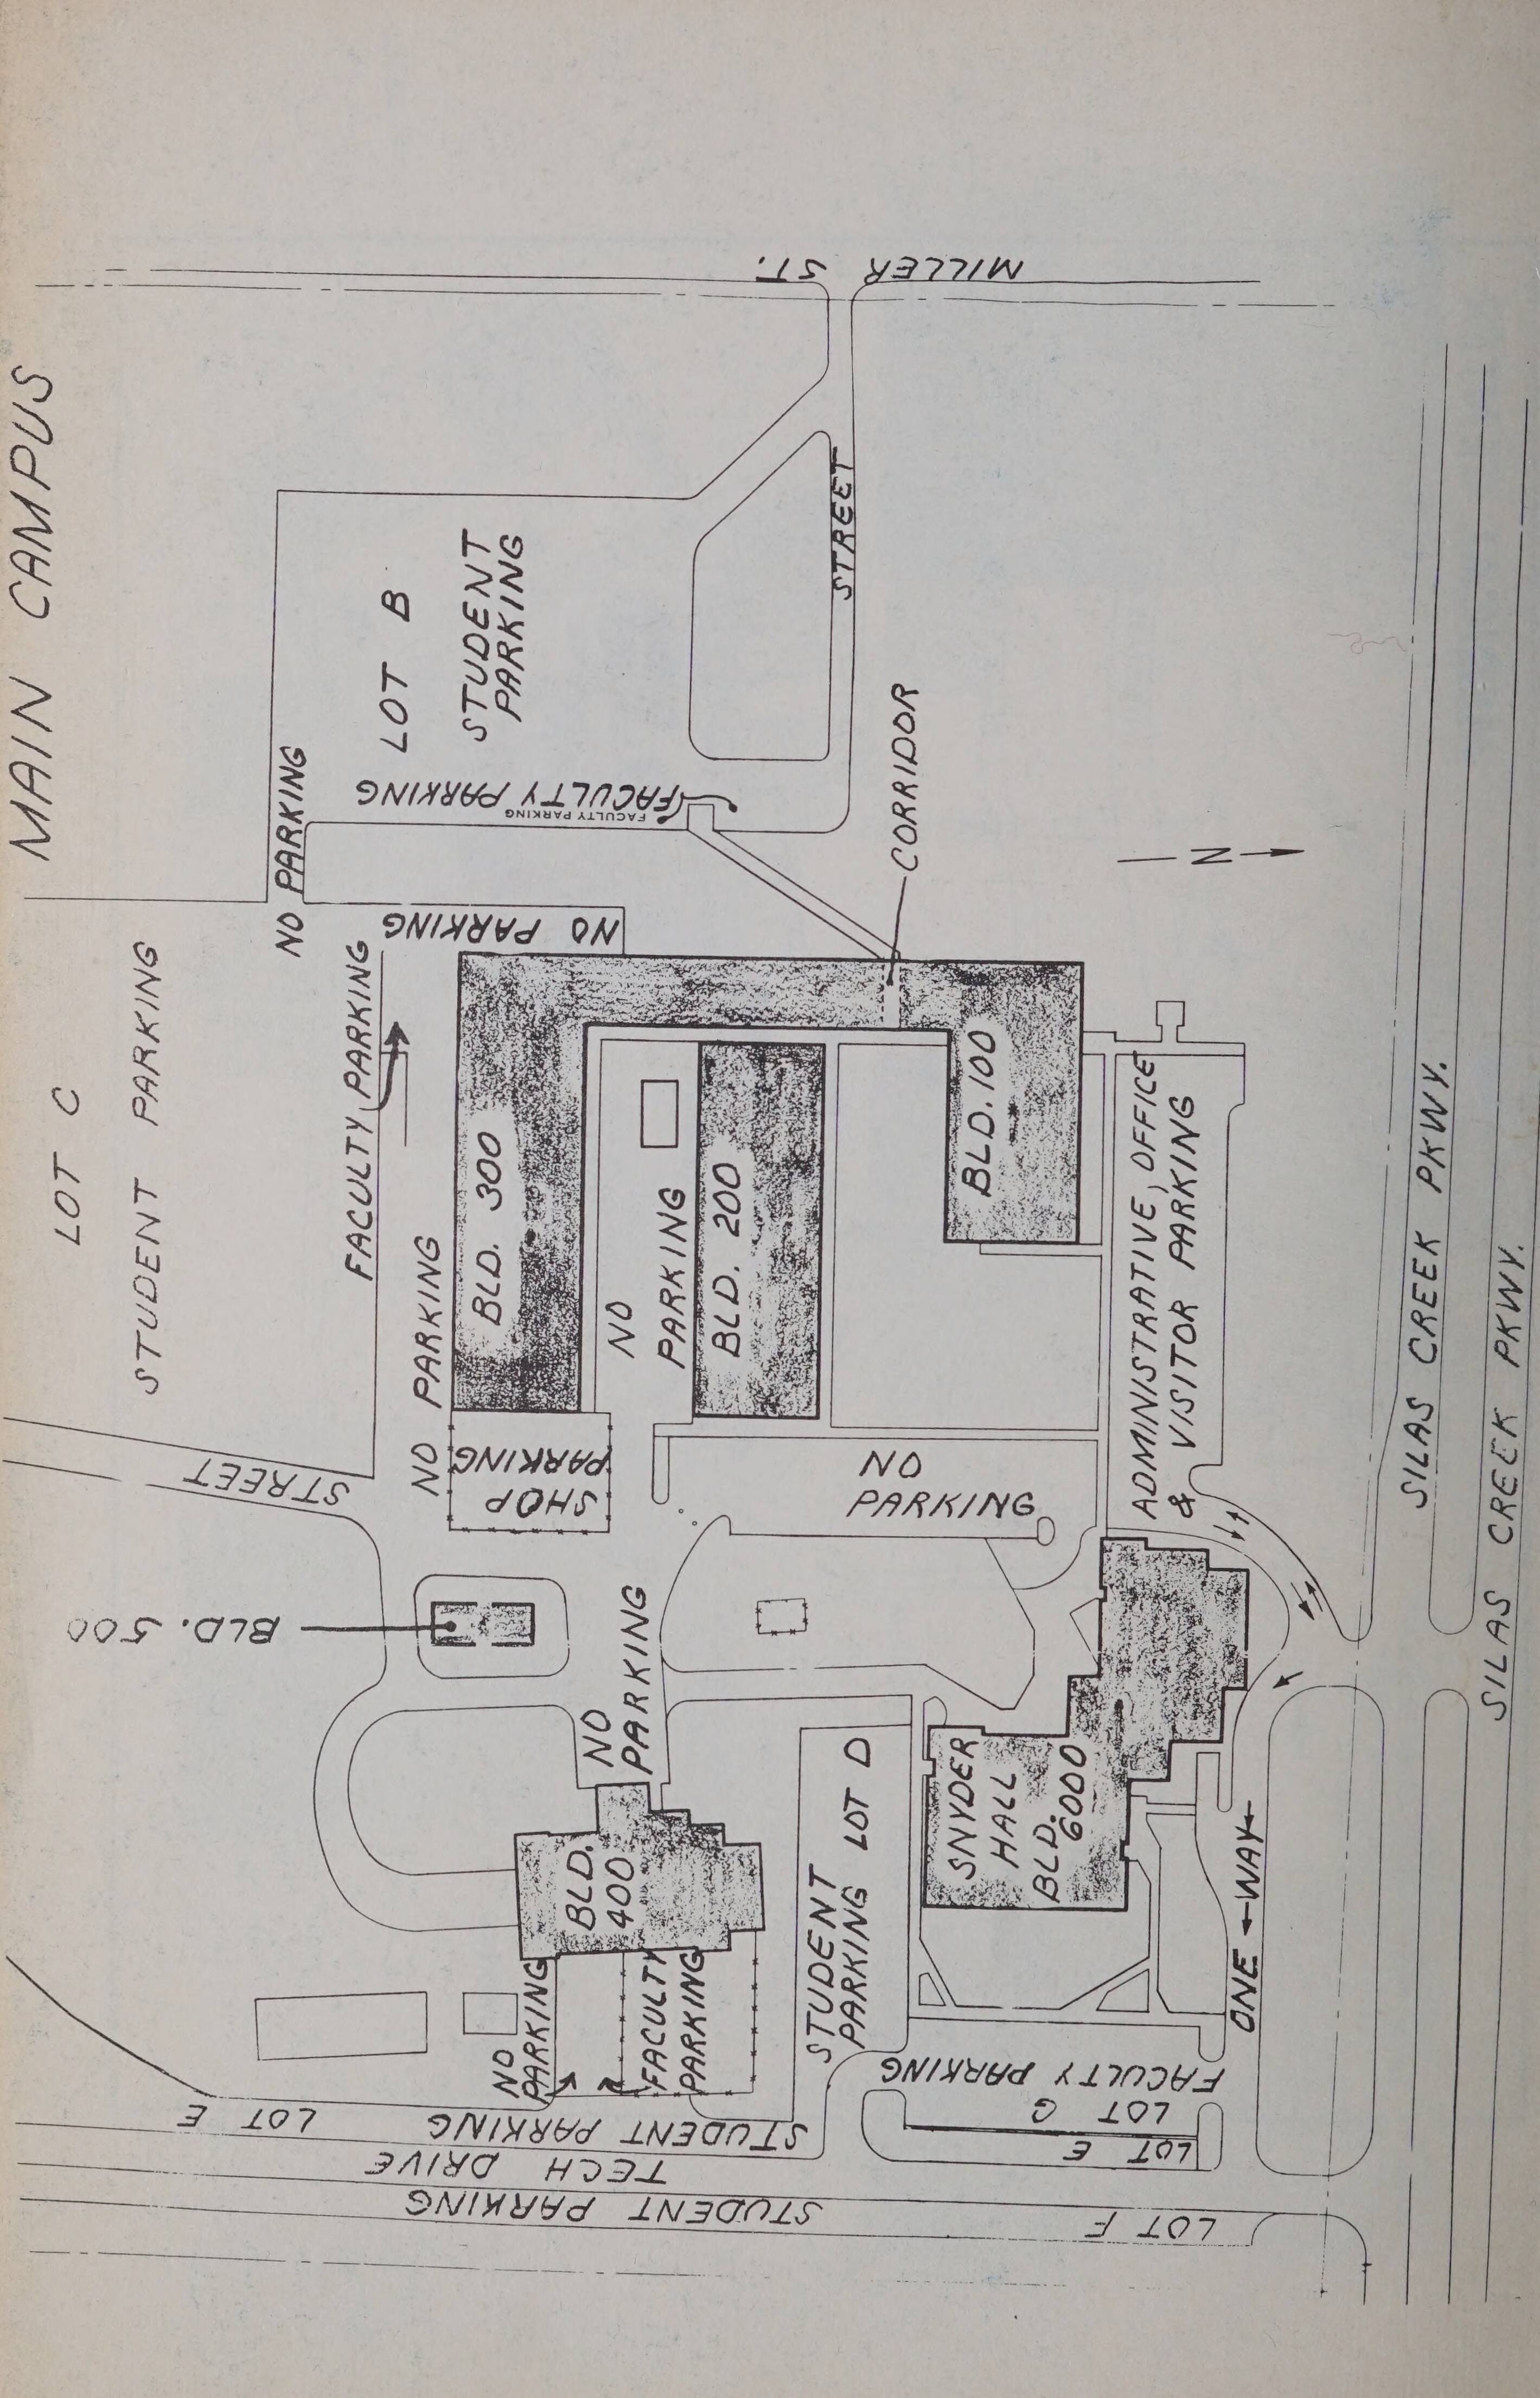 MAIN CAMPUS
LOT C
STUDENT PARKING
STREET
NO PARKING
FACULTY PARKING
NO PARKING
LOT B
STUDENT
PARKING
FACULTY PARKING
FACULTY PARKING
MILLER ST.
STREET
CORRIDOR
N
BLD. 500
NO PARKING
BLD. 300
SHOP
PARKING
NO
PARKING
BLD. 200
BLD. 100
NO
PARKING
ADMINISTRATIVE, OFFICE
& VISITOR PARKING
NO
PARKING
BLD.
400
NO
PARKING
FACULTY
PARKING
STUDENT
PARKING LOT D
SNYDER
HALL
BLD.
6000
ONE WAY
FACULTY PARKING
LOT G
LOT E
STUDENT PARKING LOT E
TECH DRIVE
STUDENT PARKING
LOT F
SILAS CREEK PKWY.
SILAS CREEK PKWY.